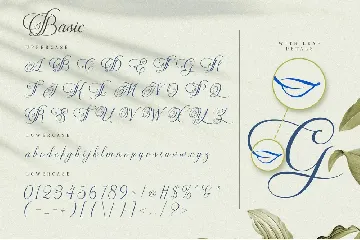 Basic
UPPERCASE
A B C D E F G H
I J K L M N O P Q
R S T U V W X Y Z
LOWERCASE
abcdefghijklmnopqrstuvwxyz
LOWERCASE
WITH LEAF
DETAILS
G